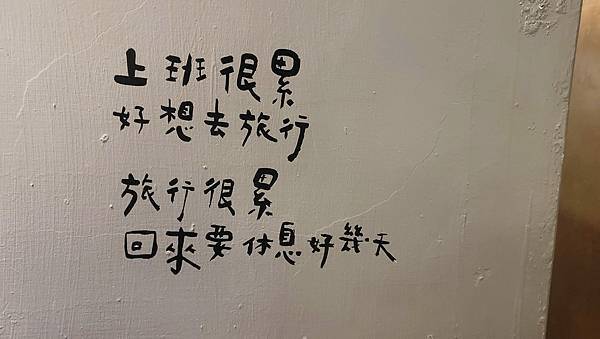 上班很累
好想去旅行
旅行很累
回來要休息好幾天